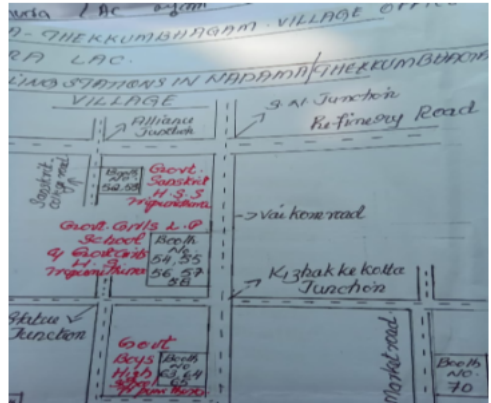 LAC
A- THEKKUMBHAGAM VILLAGE OFFI
RA LAC.
LING STATIONS IN NADAMA/THEKKUMBHAGA
VILLAGE
Alliance
Junction
S.N Junction
Refinesry Road
Sanskrit
college road
Booth
No.
52,53
Govt.
Sanskrit
H.S.S
Tripunithura
Govt. Girls L.P
School
& Govt. Girls
H.S
Tripunithura
Booth
No
54,55
56,57
58
Vaikom road
Kizhakkekotta
Junction
Statue
Junction
Govt
Boys
High
School
Tripunithura
Booth
No
63,64
65
Market road
Booth
NO
70